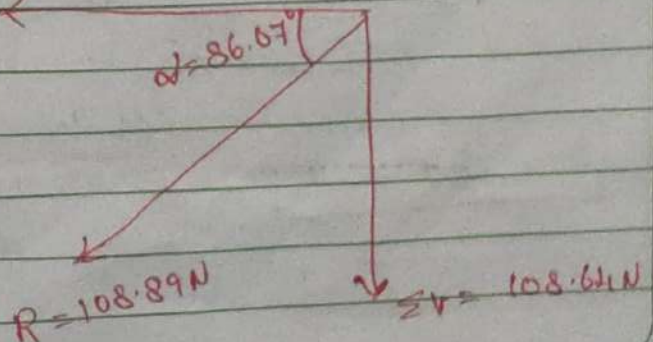 α=86.07°
R=108.89N
Σv= 108.64N